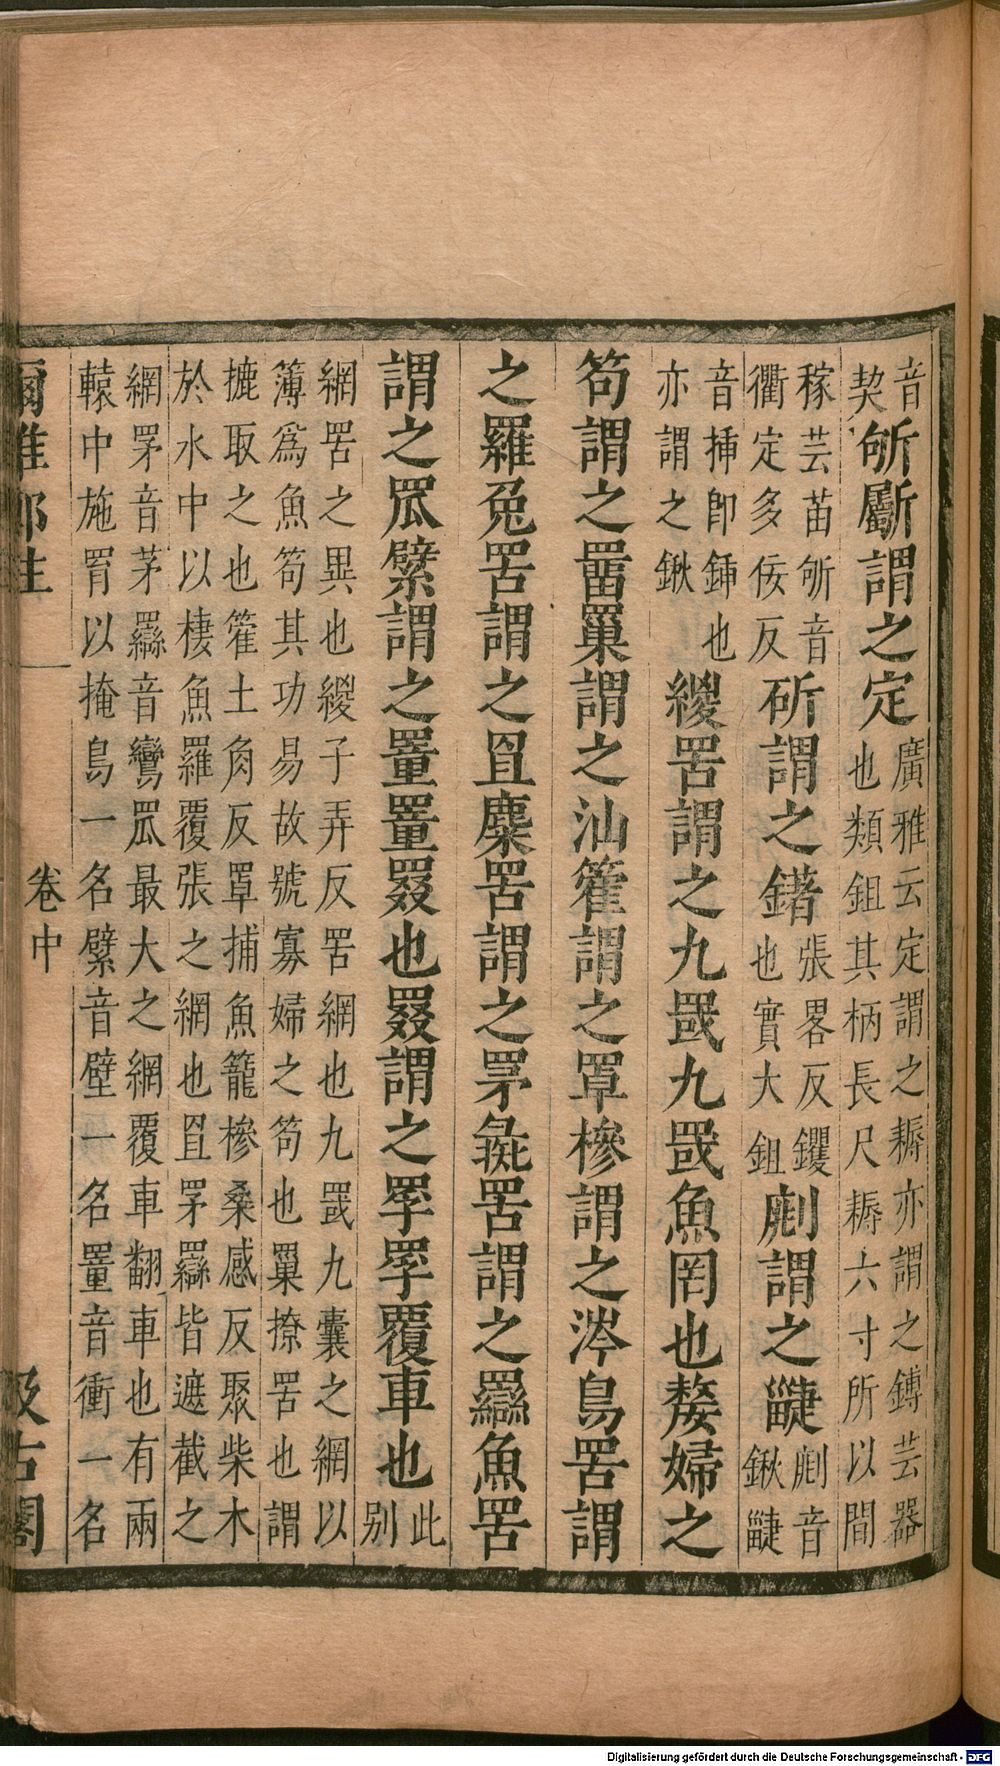 音
契
斪斸謂之定
廣雅云定謂之耨亦謂之鎛芸器
也類鉏其柄長尺耨六寸所以間
稼芸苗斪音
衢定多佞反
斫謂之鐯
張畧反钁
也實大鉏
謂之疀
音
鍬疀
音揷卽鍤也
亦謂之鍬
緵罟謂之九罭九罭魚罔也嫠婦之
笱謂之罶罺謂之汕篧謂之罩槮謂之涔鳥罟謂
之羅兔罟謂之罝麋罟謂之罞彘罟謂之羉魚罟
謂之罛繴謂之罿罿罬也罬謂之罦罦覆車也
此
别
網罟之異也緵子弄反罟網也九罭九囊之網以
簿爲魚笱其功易故號寡婦之笱也罺撩罟也謂
摝取之也篧士角反罩捕魚籠槮桑感反聚柴木
於水中以棲魚羅覆張之網也罝罞羉皆遮截之
網罞音茅羉音鸞罛最大之網覆車翻車也有兩
轅中施罥以掩鳥一名繴音壁一名罿音衝一名
爾雅注
卷中
汲古閣
Digitalisierung gefördert durch die Deutsche Forschungsgemeinschaft - DFG